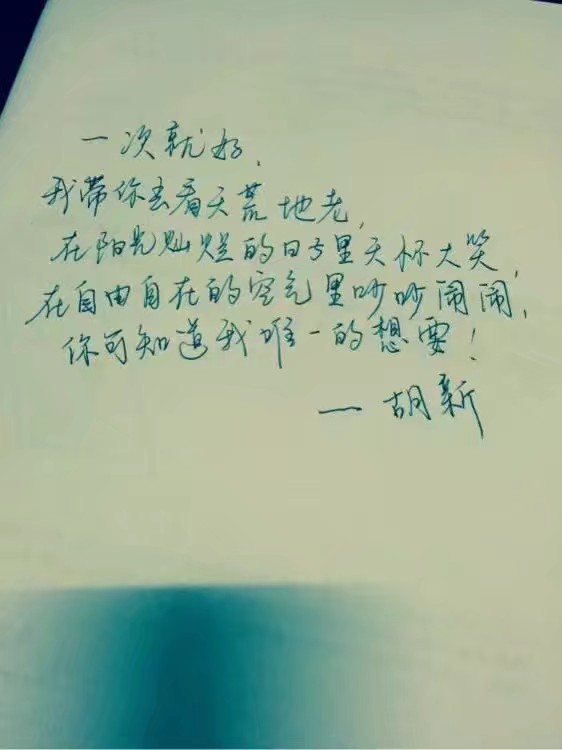 一次就好，
我带你去看天荒地老，
在阳光灿烂的日子里天怀大笑，
在自由自在的空气里吵吵闹闹，
你可知道我唯一的想要！
— 胡新